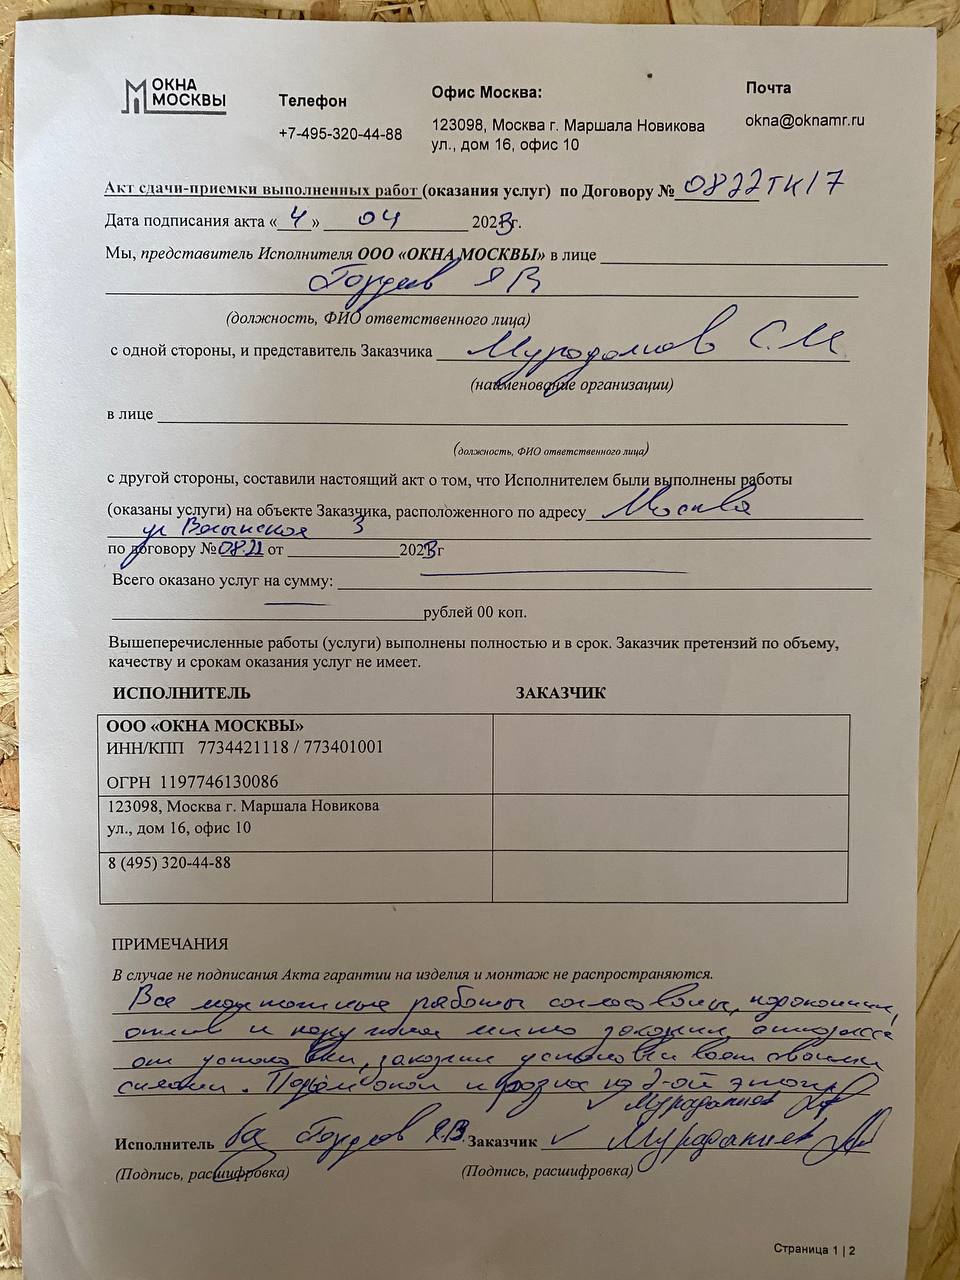 ОКНА
МОСКВЫ
Телефон
+7-495-320-44-88
Офис Москва:
123098, Москва г. Маршала Новикова
ул., дом 16, офис 10
Почта
okna@oknamr.ru
Акт сдачи-приемки выполненных работ (оказания услуг) по Договору № 0822ТК17
Дата подписания акта « 4 » 04 2023г.
Мы, представитель Исполнителя ООО «ОКНА МОСКВЫ» в лице
Гордеев Я В
(должность, ФИО ответственного лица)
с одной стороны, и представитель Заказчика С. М
(наименование организации)
в лице
(должность, ФИО ответственного лица)
с другой стороны, составили настоящий акт о том, что Исполнителем были выполнены работы
(оказаны услуги) на объекте Заказчика, расположенного по адресу Москва
ул 3
по договору № 0822 от 2023г
Всего оказано услуг на сумму:
рублей 00 коп.
Вышеперечисленные работы (услуги) выполнены полностью и в срок. Заказчик претензий по объему,
качеству и срокам оказания услуг не имеет.
ИСПОЛНИТЕЛЬ ЗАКАЗЧИК
ООО «ОКНА МОСКВЫ»
ИНН/КПП 7734421118 / 773401001
ОГРН 1197746130086
123098, Москва г. Маршала Новикова
ул., дом 16, офис 10
8 (495) 320-44-88
ПРИМЕЧАНИЯ
В случае не подписания Акта гарантии на изделия и монтаж не распространяются.
Все монтажные работы согласованы,
отлив и заказчик
от установки, заказчик своими
силами. Подъём окон и на 2-ой этаж
Исполнитель Гордеев Я.В. Заказчик
(Подпись, расшифровка) (Подпись, расшифровка)
Страница 1 | 2